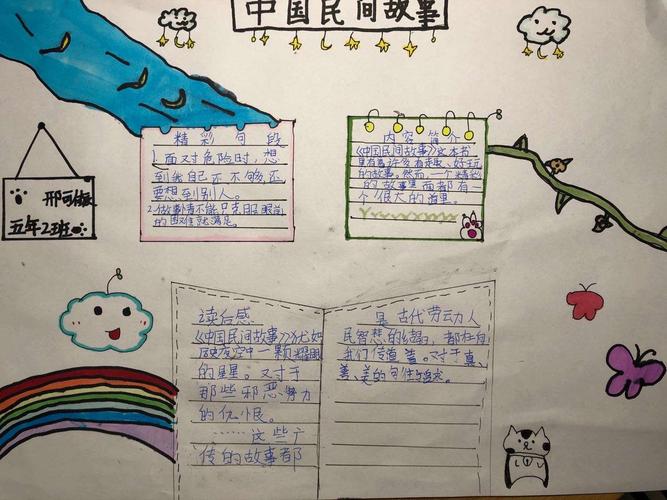 中国民间故事
精彩句段
1.面对危险时,想
到我自己还不够,还
要想到别人。
2.做事情不能只克服眼前
的困难就满足。
内容简介
《中国民间故事》这本书
里有着许多有趣、好玩
的故事。然而,一个精彩
的故事里面都有一
个很大的道理。
邢可
五年2班
读后感
《中国民间故事》犹如
夜空中一颗耀眼
的星星。对于
那些邪恶势力
的仇恨。
……这些广
传的故事都
是古代劳动人
民智慧的结晶,都在向
我们传道着。对于真、
善、美的向往与追求。